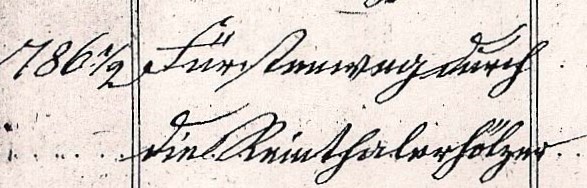 786 1/2 Fürstenweg durch
die Reinthalerhölzer